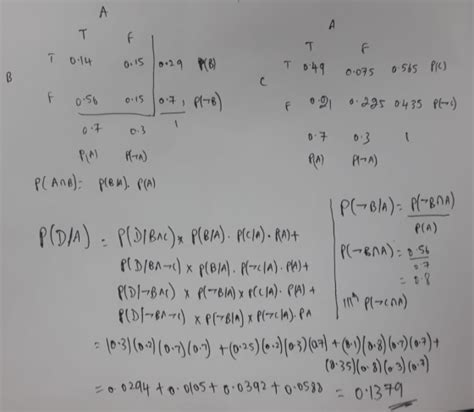 A A
T F T F
B T 0.14 0.15 0.29 P(B) C T 0.49 0.075 0.565 P(C)
F 0.56 0.15 0.71 P(¬B) F 0.21 0.225 0.435 P(¬C)
0.7 0.3 1 0.7 0.3 1
P(A) P(¬A) P(A) P(¬A)
P(A∩B) = P(B/A). P(A)
P(D/A) = P(D/B∧C) × P(B/A). P(C/A). P(A) +
P(D/B∧¬C) × P(B/A). P(¬C/A). P(A) +
P(D/¬B∧C) × P(¬B/A) × P(C/A). P(A) +
P(D/¬B∧¬C) × P(¬B/A) × P(¬C/A). PA
P(¬B/A) = P(¬B∩A) / P(A)
P(¬B∩A) = 0.56 / 0.7
= 0.8
P(¬C∩A)
= (0.3)(0.2)(0.7)(0.7) + (0.25)(0.2)(0.3)(0.7) + (0.1)(0.8)(0.7)(0.7) +
(0.35)(0.8)(0.3)(0.7)
= 0.0294 + 0.0105 + 0.0392 + 0.0588 = 0.1379